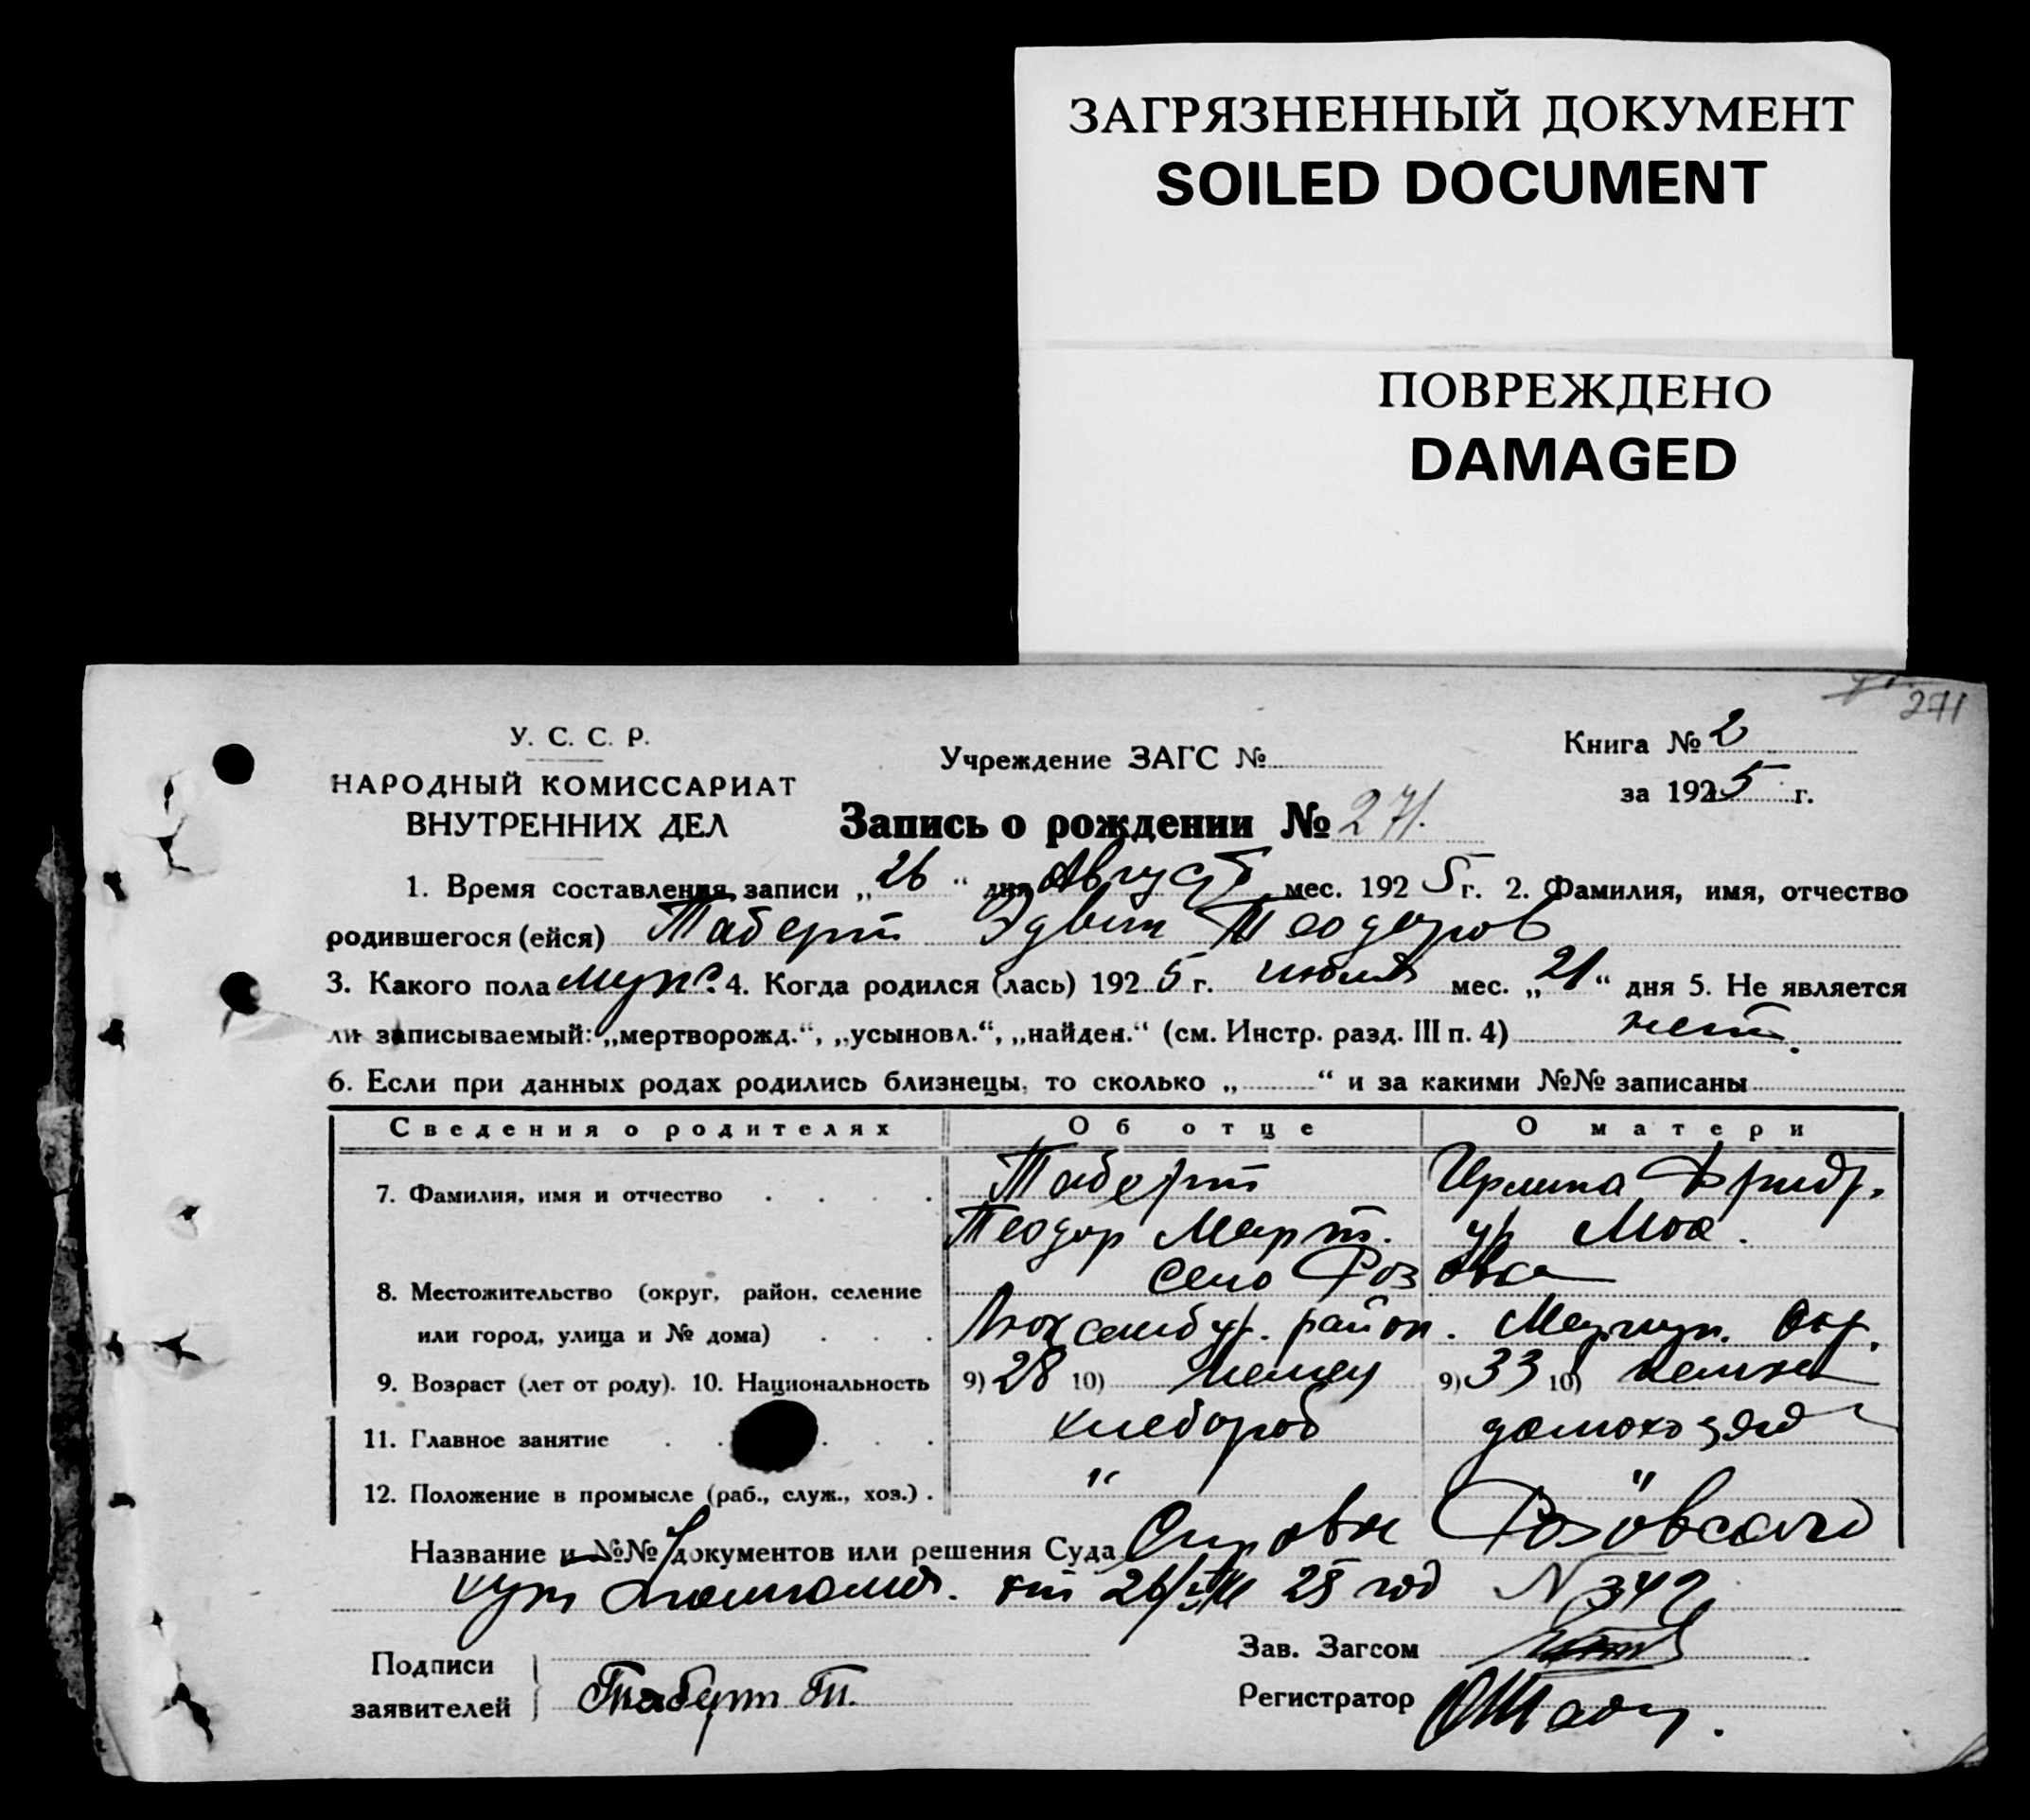 ЗАГРЯЗНЕННЫЙ ДОКУМЕНТ
SOILED DOCUMENT
ПОВРЕЖДЕНО
DAMAGED
271
У. С. С. Р.
НАРОДНЫЙ КОМИССАРИАТ
ВНУТРЕННИХ ДЕЛ
Учреждение ЗАГС №
Книга № 2
за 1925 г.
Запись о рождении № 271.
1. Время составления записи „26“ дня Август мес. 1925 г. 2. Фамилия, имя, отчество
родившегося (ейся) Таберт Эдвин Теодоров
3. Какого пола муж. 4. Когда родился (лась) 1925 г. июля мес. „21“ дня 5. Не является
ли записываемый: „мертворожд.“, „усыновл.“, „найден.“ (см. Инстр. разд. III п. 4) нет.
6. Если при данных родах родились близнецы, то сколько „ “ и за какими №№ записаны
Сведения о родителях Об отце О матери
7. Фамилия, имя и отчество . . . . Таберт Фридр.
Теодор Март. ур
8. Местожительство (округ, район, селение село Розовка
или город, улица и № дома) . . . Люксембур. район. Мариуп. Окр.
9. Возраст (лет от роду). 10. Национальность 9) 28 10) немец 9) 33 10) немка
11. Главное занятие . . . . . хлебороб домохозяй
12. Положение в промысле (раб., служ., хоз.) . " "
Название и №№ документов или решения Суда Справка Розовского
от 26/VIII 25 год N 349
Подписи
заявителей Таберт Т.
Зав. Загсом
Регистратор